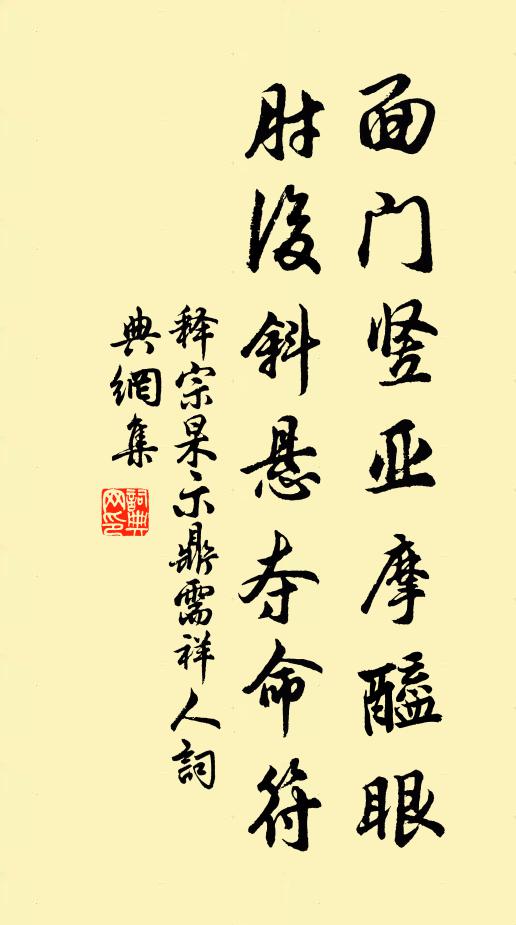 面门竖亚摩醯眼
肘後斜悬夺命符
释宗杲示鼎需祥人詞
典網集
詞典網印